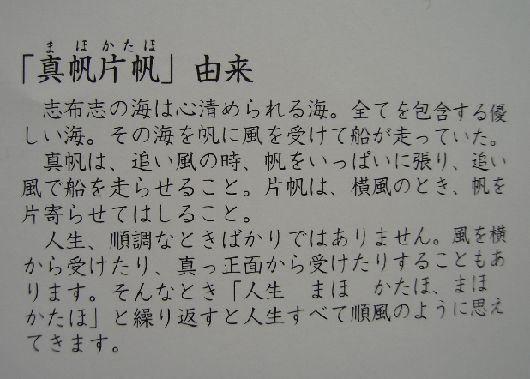 まほかたほ
「真帆片帆」由来
志布志の海は心清められる海。全てを包含する優
しい海。その海を帆に風を受けて船が走っていた。
真帆は、追い風の時、帆をいっぱいに張り、追い
風で船を走らせること。片帆は、横風のとき、帆を
片寄らせてはしること。
人生、順調なときばかりではありません。風を横
から受けたり、真っ正面から受けたりすることもあ
ります。そんなとき「人生　まほ　かたほ、まほ
かたほ」と繰り返すと人生すべて順風のように思え
てきます。